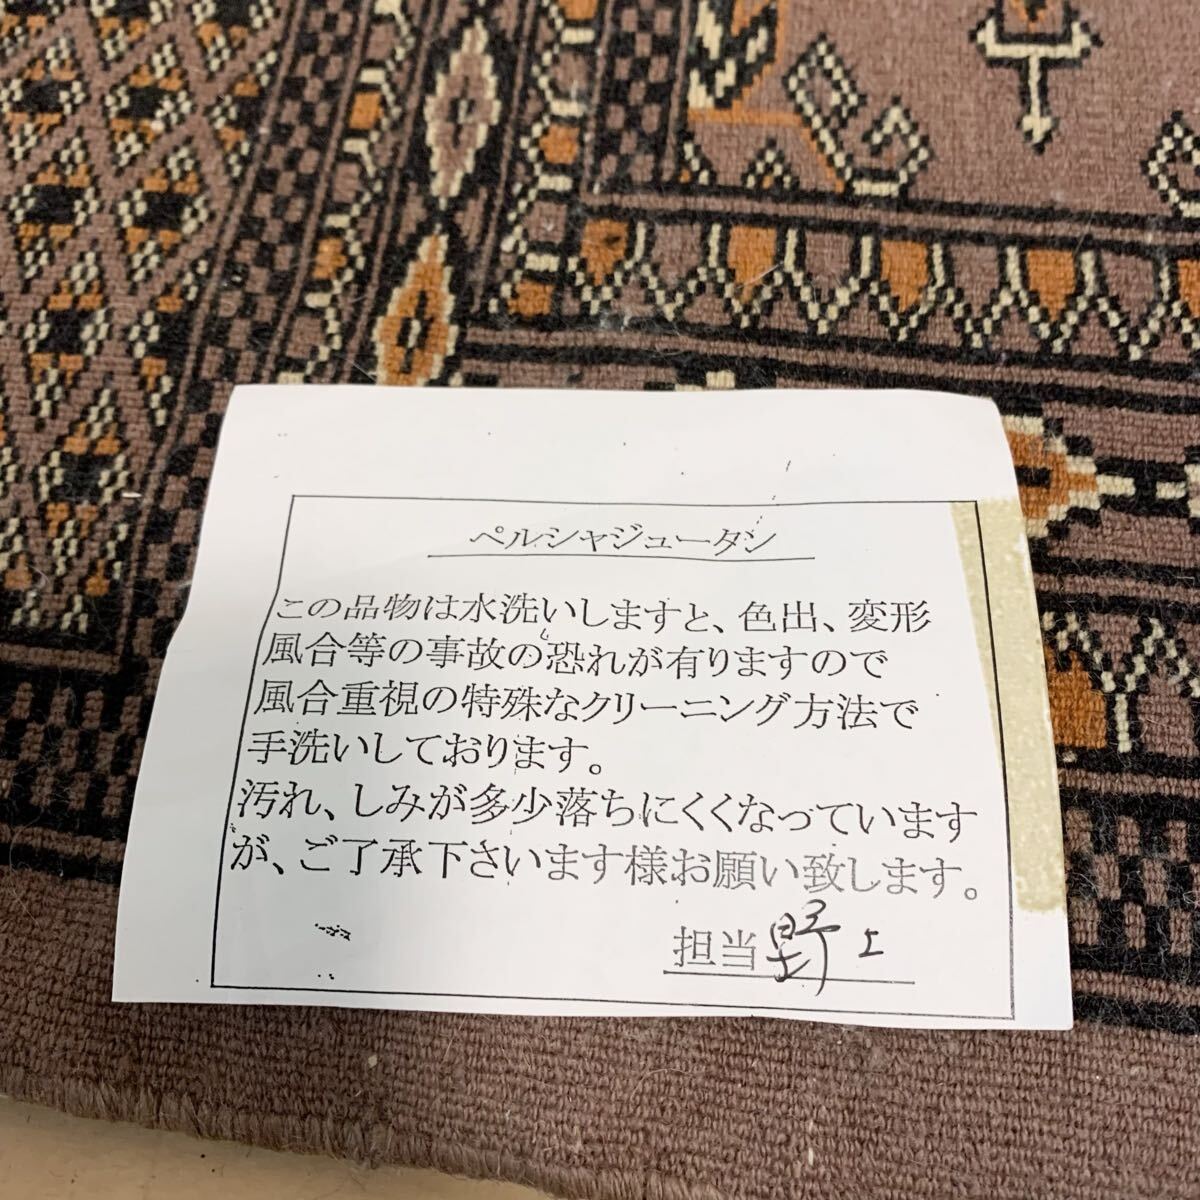 ペルシャジュータン
この品物は水洗いしますと、色出、変形
風合等の事故の恐れが有りますので
風合重視の特殊なクリーニング方法で
手洗いしております。
汚れ、しみが多少落ちにくくなっています
が、ご了承下さいます様お願い致します。
担当 野上